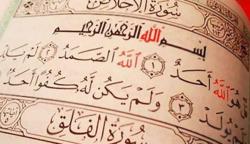 سُورَةُ الإِخْلَاصِ
بِسْمِ اللَّهِ الرَّحْمَٰنِ الرَّحِيمِ
هُوَ اللَّهُ أَحَدٌ ١ اللَّهُ الصَّمَدُ ٢ لَمْ يَلِدْ
يُولَدْ ٣ وَلَمْ يَكُن لَّهُ كُفُوًا أَحَدٌ
سُورَةُ الْفَلَقِ